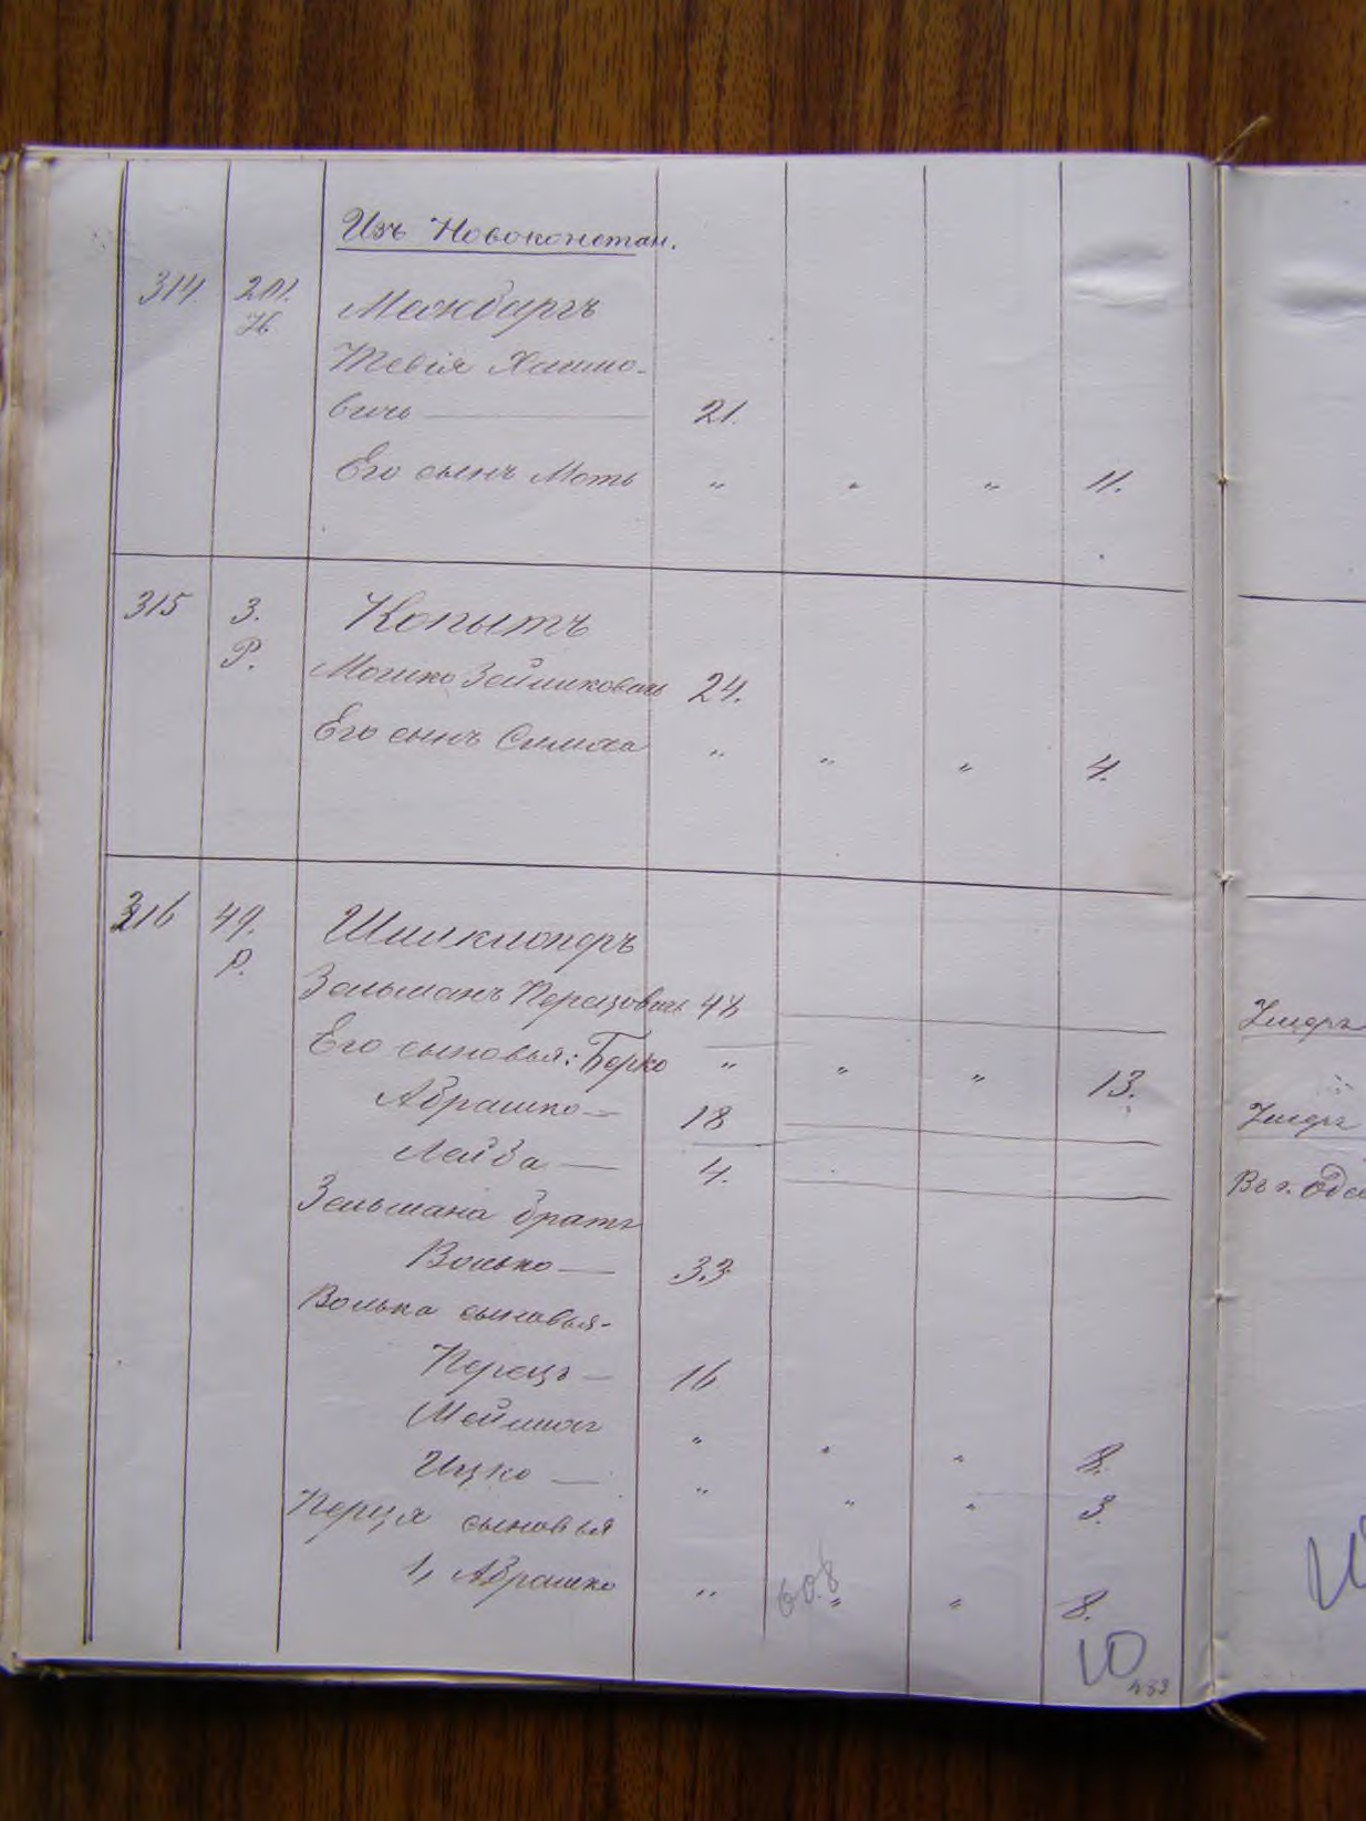 Изъ Новоконстан.
314 201. Можбаргъ
Н
Тевія Хаимо-
вичъ 21.
Его сынъ Моть „ „ „ 11.
315 3. Копытъ
Р.
Мошко Зейликовичъ 24.
Его сынъ Симха „ „ „ 4.
316 49. Шmuклюперъ
Р.
Зельманъ Перецовичъ 48 Умеръ
Его сыновья: Берко „ „ „ 13.
Абрашко — 18 Умеръ
Лейба — 4. Въ г. Оде
Зельмана братъ
Волько — 33
Волька сыновья-
Перецъ — 16
„ „ „ 8.
Ицко — „ „ „ 3.
Перца сыновья
1, Абрашко „ „ „ 8.
608
10
483